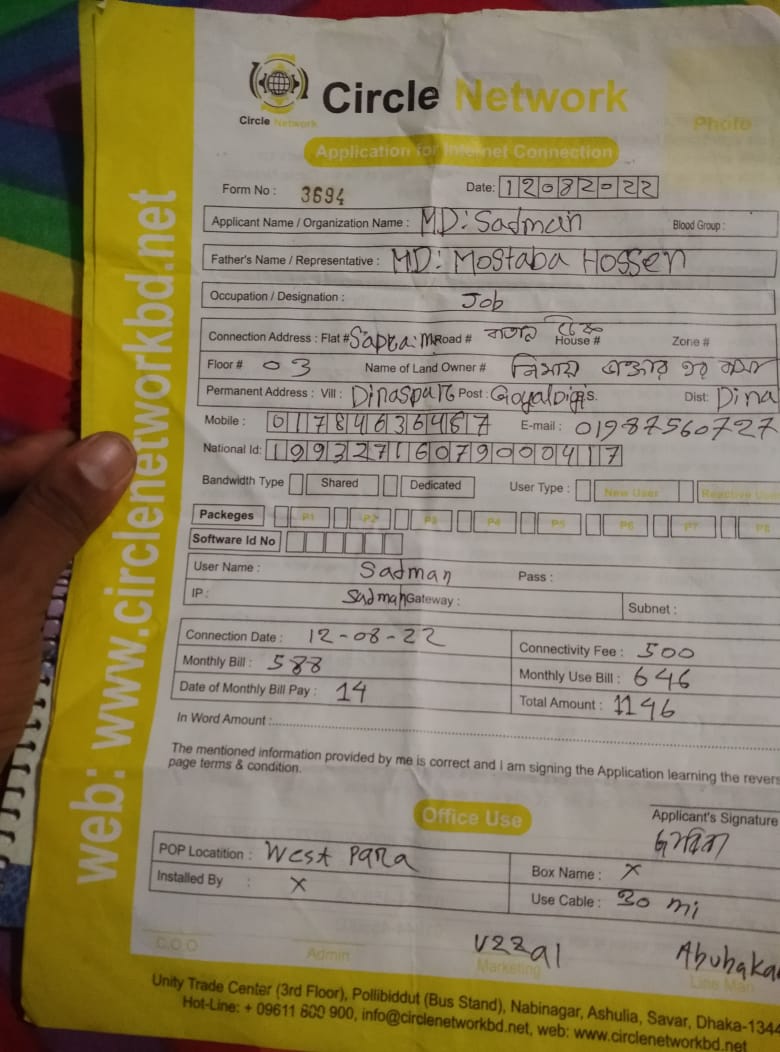 Circle Network
Circle Network
Photo
Application for Internet Connection
Form No : 3694
Date: 12082022
Applicant Name / Organization Name : MD: Sadman Blood Group :
Father's Name / Representative : MD: Mostaba Hossen
Occupation / Designation : Job
Connection Address : Flat # Road # House # Zone #
Floor # 03 Name of Land Owner #
Permanent Address : Vill : Post : Dist: Dina
Mobile : 01784636467 E-mail : 01987560727
National Id: 19932716079000417
Bandwidth Type Shared Dedicated User Type : New User
Packeges P1 P2 P3 P4 P5 P6 P7 P8
Software Id No
User Name : Sadman Pass :
IP : Sadman Gateway : Subnet :
Connection Date : 12-08-22 Connectivity Fee : 500
Monthly Bill : 588 Monthly Use Bill : 646
Date of Monthly Bill Pay : 14 Total Amount : 1146
In Word Amount :
The mentioned information provided by me is correct and I am signing the Application learning the revers
page terms & condition.
Office Use
Applicant's Signature
POP Locatition : West Para Box Name : X
Installed By : X Use Cable : 30 mi
C.O.O Admin Marketing Line Man
Uzzal Abubaka
Unity Trade Center (3rd Floor), Pollibiddut (Bus Stand), Nabinagar, Ashulia, Savar, Dhaka-1344
Hot-Line: + 09611 800 900, info@circlenetworkbd.net, web: www.circlenetworkbd.net
web: www.circlenetworkbd.net